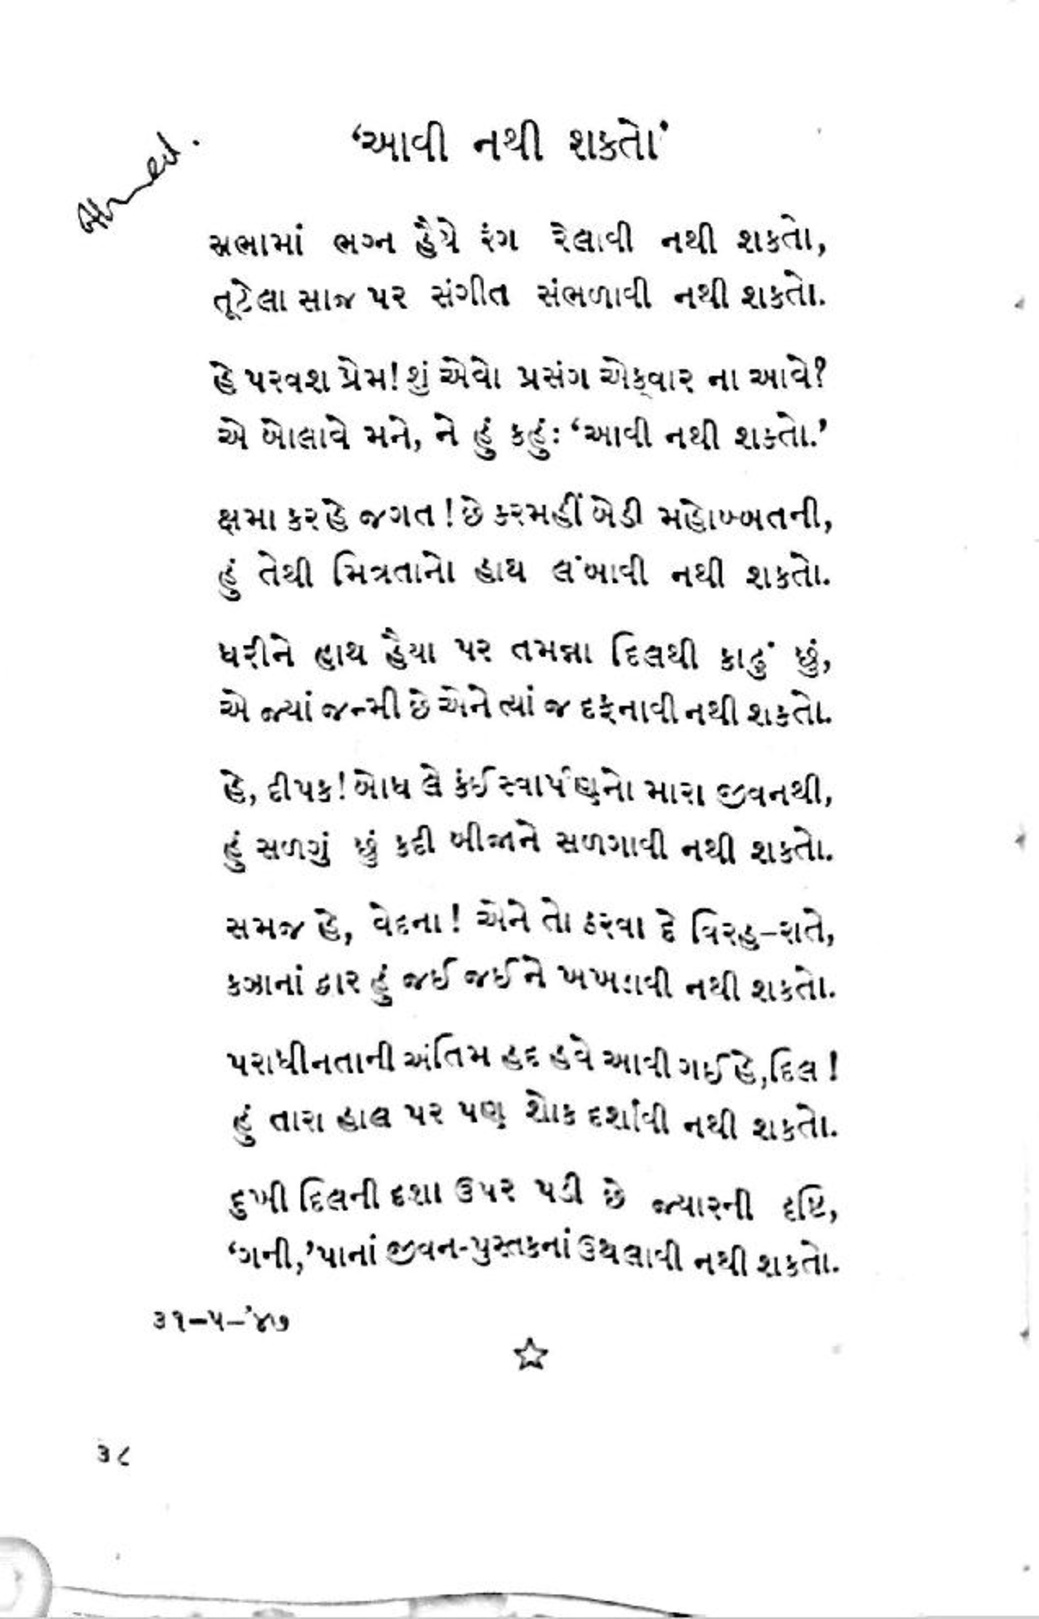 ‘આવી નથી શકતો’
Ahmed.
સભામાં ભગ્ન હૈયે રંગ રેલાવી નથી શકતો,
તૂટેલા સાજ પર સંગીત સંભળાવી નથી શકતો.
હે પરવશ પ્રેમ! શું એવો પ્રસંગ એકવાર ના આવે?
એ બોલાવે મને, ને હું કહું: ‘આવી નથી શકતો.’
ક્ષમા કર હે જગત! છે કરમહીં બેડી મહોબ્બતની,
હું તેથી મિત્રતાનો હાથ લંબાવી નથી શકતો.
ધરીને હાથ હૈયા પર તમન્ના દિલથી કાઢું છું,
એ જ્યાં જન્મી છે એને ત્યાં જ દફનાવી નથી શકતો.
હે, દીપક! બોધ લે કંઈ સ્વાર્પણનો મારા જીવનથી,
હું સળગું છું કદી બીજાને સળગાવી નથી શકતો.
સમજ હે, વેદના! એને તો ઠરવા દે વિરહ-રાતે,
કઝાનાં દ્વાર હું જઈ જઈને ખખડાવી નથી શકતો.
પરાધીનતાની અંતિમ હદ હવે આવી ગઈ હે, દિલ!
હું તારા હાલ પર પણ શોક દર્શાવી નથી શકતો.
દુખી દિલની દશા ઉપર પડી છે જ્યારની દૃષ્ટિ,
‘ગની,’ પાનાં જીવન-પુસ્તકનાં ઉથલાવી નથી શકતો.
૩૧-૫-’૪૭
૩૮